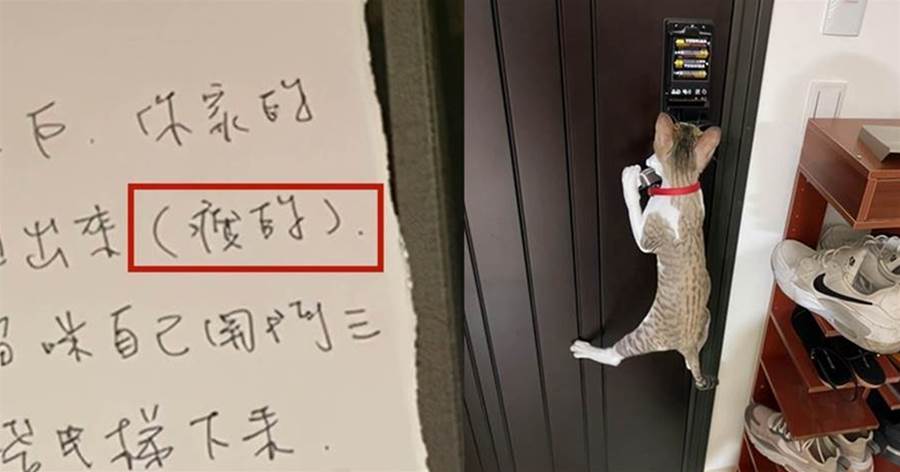 戶. 你家的
出來(瘦的).
貓咪自己開門三
電梯下來.